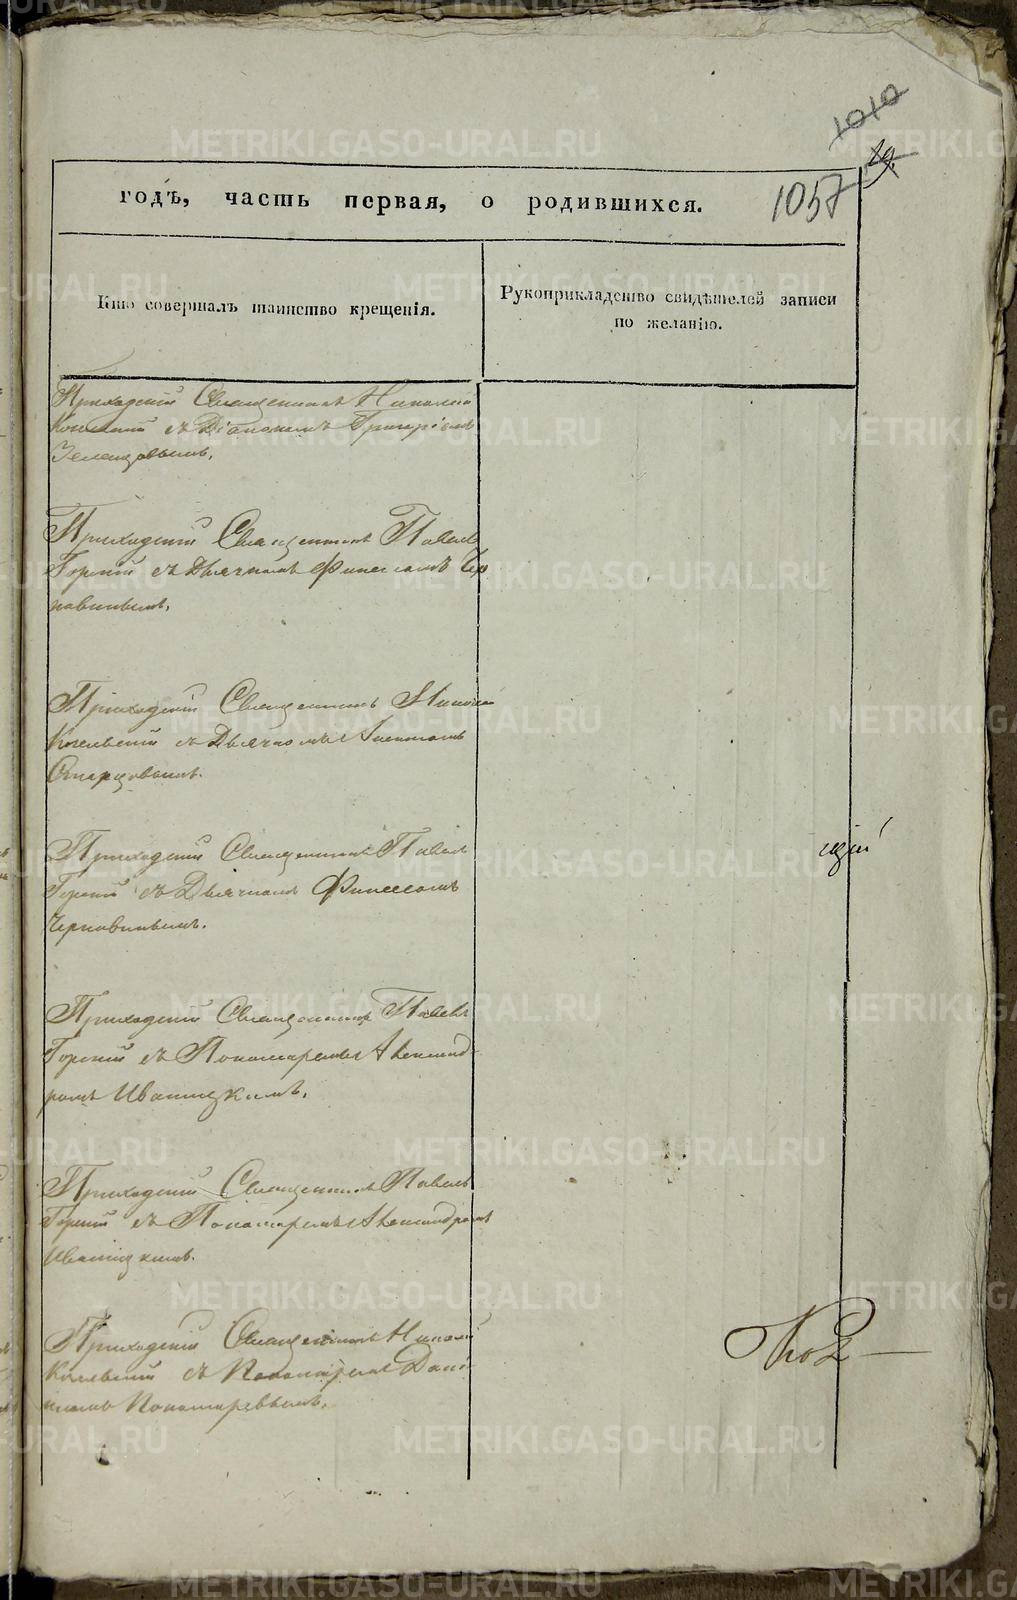 1010
29
1057
годъ, часть первая, о родившихся.
Кто совершалъ таинство крещенія.
Рукоприкладство свидѣтелей записи
по желанію.
Приходскій Священникъ Николай
съ Діакономъ Григоріемъ
Зеленцовымъ.
Приходскій Священникъ Павелъ
Горскій съ Дьячкомъ Финеесомъ Чер
навинымъ.
Приходскій Священникъ Николай
съ Дьячкомъ
Старцовымъ.
Приходскій Священникъ Павелъ
Горскій съ Дьячкомъ Финеесомъ
Чернавинымъ.
щій
Приходскій Священникъ Павелъ
Горскій съ Пономаремъ Александ
ромъ Иваницкимъ.
Приходскій Священникъ Павелъ
Горскій съ Пономаремъ Александромъ
Иваницкимъ.
Приходскій Священникъ Николай
съ Пономаремъ Дані
иломъ Пономаревымъ.
METRIKI.GASO-URAL.RU